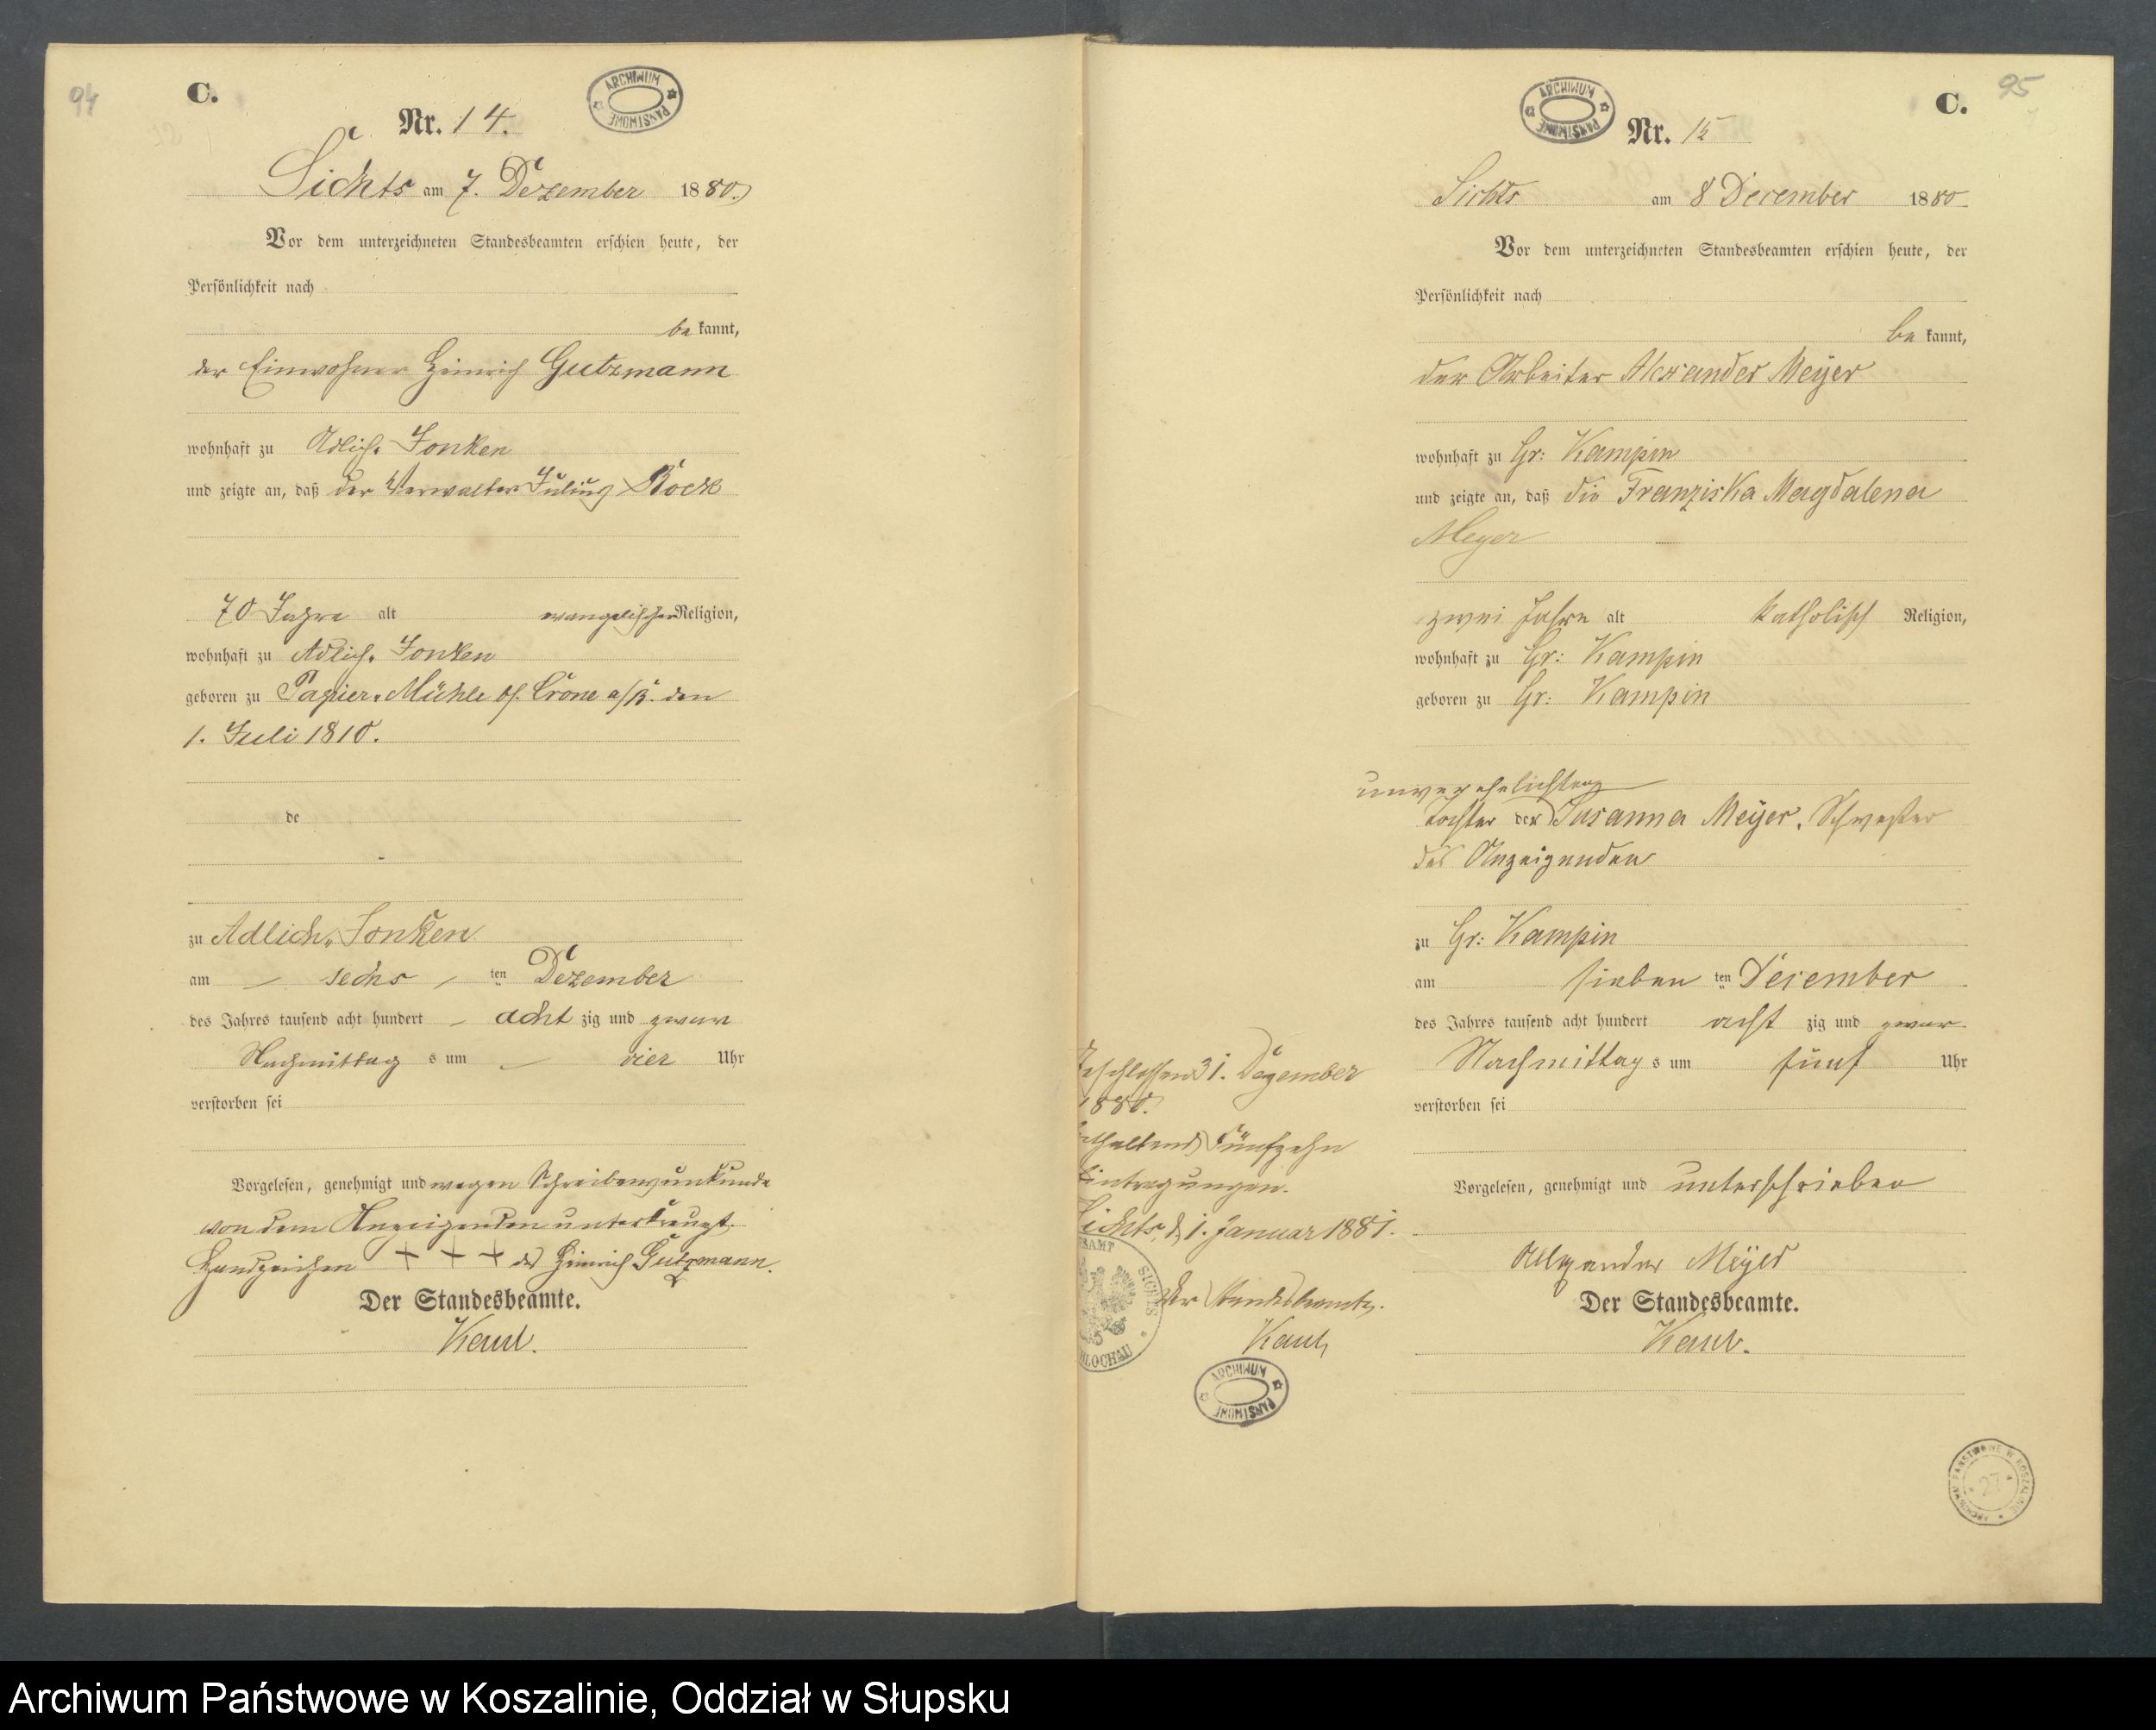 94
C.
ARCHIWUM PAŃSTWOWE
Nr. 14.
Sichts am 7. Dezember 1880.
Vor dem unterzeichneten Standesbeamten erschien heute, der
Persönlichkeit nach
be kannt,
der Einwohner Heinrich Gutzmann
wohnhaft zu Adlich. Jonken
und zeigte an, daß der Verwalter Julius Bock
70 Jahre alt evangelischer Religion,
wohnhaft zu Adlich. Jonken
geboren zu Papier-Mühle bf. Crone a/B. den
1. Juli 1810.
de
zu Adlich. Jonken
am sechs ten Dezember
des Jahres tausend acht hundert acht zig und zwar
Nachmittag s um vier Uhr
verstorben sei
Vorgelesen, genehmigt und wegen Schreibensunkunde
von dem Anzeigenden unterkreuzt.
Handzeichen + + + des Heinrich Gutzmann.
Der Standesbeamte.
Kaul.
95
C.
ARCHIWUM PAŃSTWOWE
Nr. 15
Sichts am 8 December 1880
Vor dem unterzeichneten Standesbeamten erschien heute, der
Persönlichkeit nach
be kannt,
der Arbeiter Alexander Meyer
wohnhaft zu Gr: Kampin
und zeigte an, daß die Franziska Magdalena
Meyer
zwei Jahre alt katholisch Religion,
wohnhaft zu Gr: Kampin
geboren zu Gr: Kampin
unverehelichten
Tochter der Susanna Meyer, Schwester
des Anzeigenden
zu Gr: Kampin
am sieben ten December
des Jahres tausend acht hundert acht zig und zwar
Nachmittag s um fünf Uhr
verstorben sei
Vorgelesen, genehmigt und unterschrieben
Alexander Meyer
Der Standesbeamte.
Kaul.
Geschlossen 31. Dezember
1880.
enthaltend fünfzehn
Eintragungen.
Sichts, d. 1. Januar 1881.
Der Standesbeamte.
Kaul
SICHTS
SCHLOCHAU
ARCHIWUM PAŃSTWOWE
ARCHIWUM PAŃSTWOWE W KOSZALINIE
27
Archiwum Państwowe w Koszalinie, Oddział w Słupsku